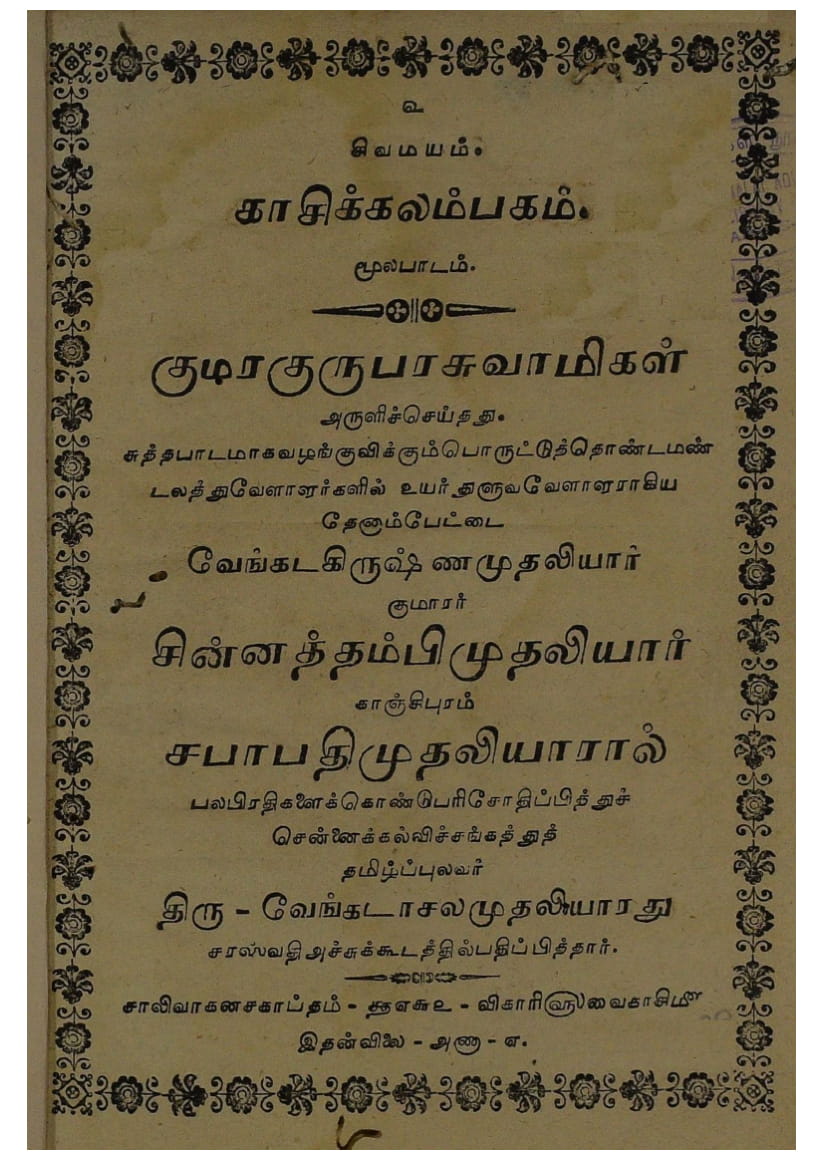 உ
சிவமயம்.
காசிக்கலம்பகம்.
மூலபாடம்.
குமரகுருபரசுவாமிகள்
அருளிச்செய்தது.
சுத்தபாடமாகவழங்குவிக்கும்பொருட்டுத்தொண்டமண்
டலத்துவேளாளர்களில் உயர்துளுவவேளாளராகிய
தேனாம்பேட்டை
வேங்கடகிருஷ்ணமுதலியார்
குமாரர்
சின்னத்தம்பிமுதலியார்
காஞ்சிபுரம்
சபாபதிமுதலியாரால்
பலபிரதிகளைக்கொண்டுபரிசோதிப்பித்துச்
சென்னைக்கல்விச்சங்கத்துத்
தமிழ்ப்புலவர்
திரு - வேங்கடாசலமுதலியாரது
சரஸ்வதிஅச்சுக்கூடத்தில்பதிப்பித்தார்.
சாலிவாகனசகாப்தம் - ௲௭௮௨ - விகாரி௵வைகாசி௴
இதன்விலை - அணா - ௭.